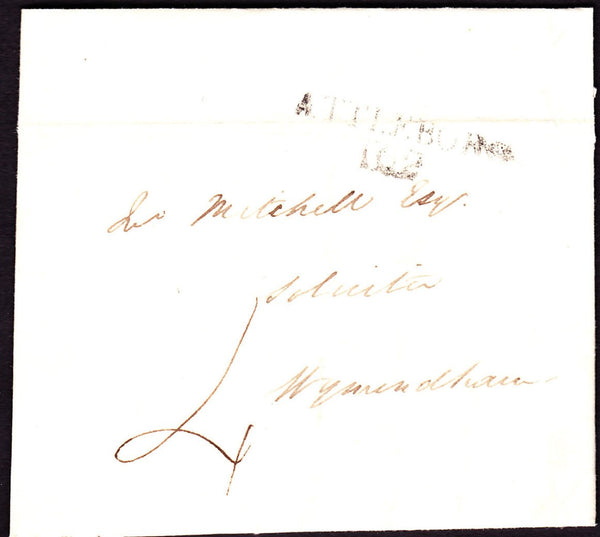 ATTLEBORO
102
Mitchell Esqr.
Solicitor
Wymondham
4